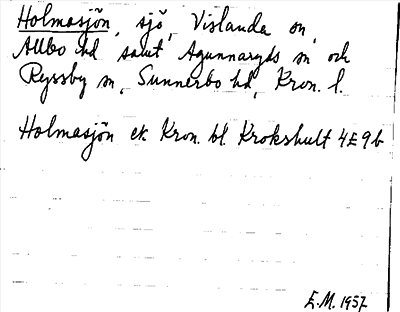 Holmasjön, sjö, Vislanda sn,
Allbo hd samt Agunnaryds sn och
Ryssby sn, Sunnerbo hd, Kron. l.
Holmasjön ek. Kron. bl. Krokshult 4E9b
E.M. 1957